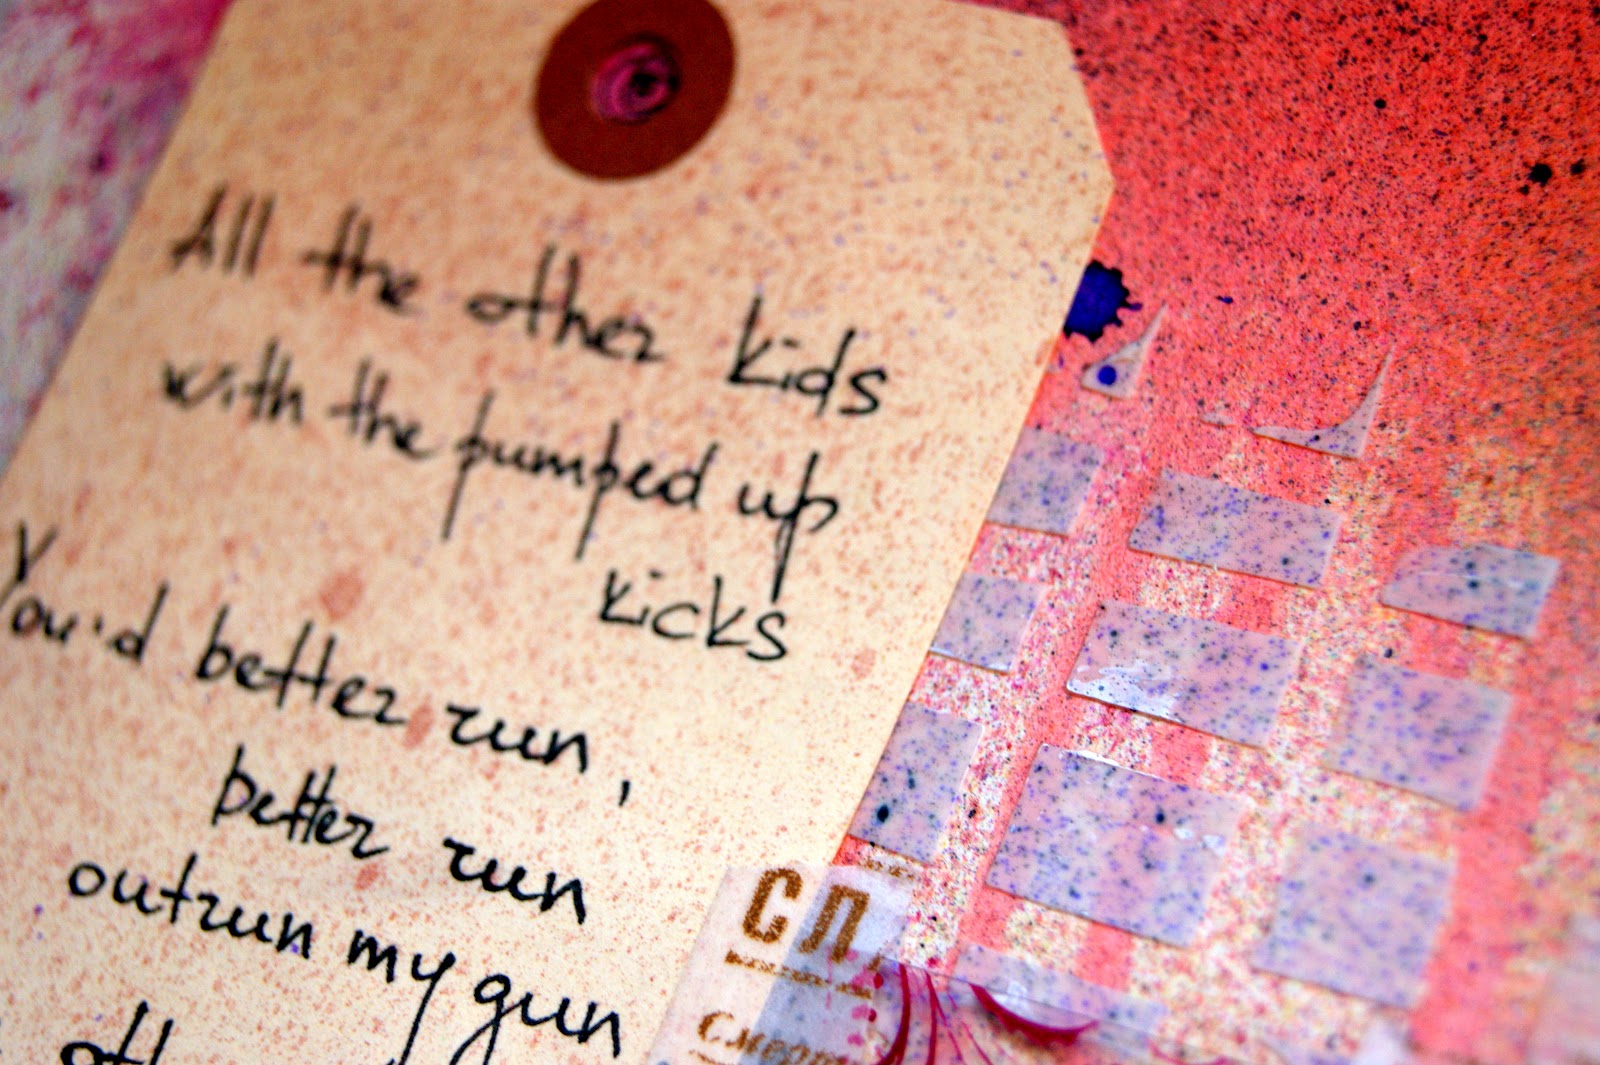 All the other kids
with the pumped up
kicks
You'd better run,
better run
outrun my gun
СП